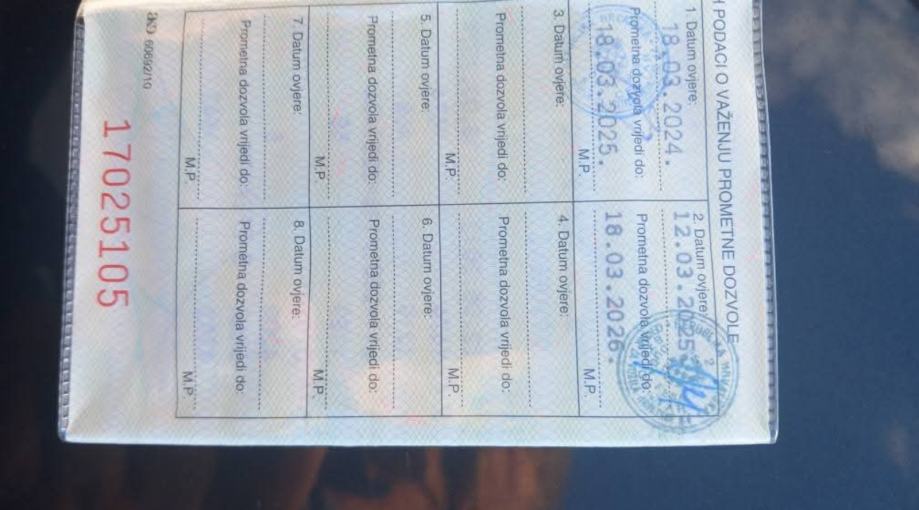 H PODACI O VAŽENJU PROMETNE DOZVOLE
1. Datum ovjere:
18.03.2024.
Prometna dozvola vrijedi do:
18.03.2025.
M.P.
2. Datum ovjere:
12.03.2025.
Prometna dozvola vrijedi do:
18.03.2026.
M.P.
3. Datum ovjere:
Prometna dozvola vrijedi do:
M.P.
4. Datum ovjere:
Prometna dozvola vrijedi do:
M.P.
5. Datum ovjere:
Prometna dozvola vrijedi do:
M.P.
6. Datum ovjere:
Prometna dozvola vrijedi do:
M.P.
7. Datum ovjere:
Prometna dozvola vrijedi do:
M.P.
8. Datum ovjere:
Prometna dozvola vrijedi do:
M.P.
60692/10
17025105